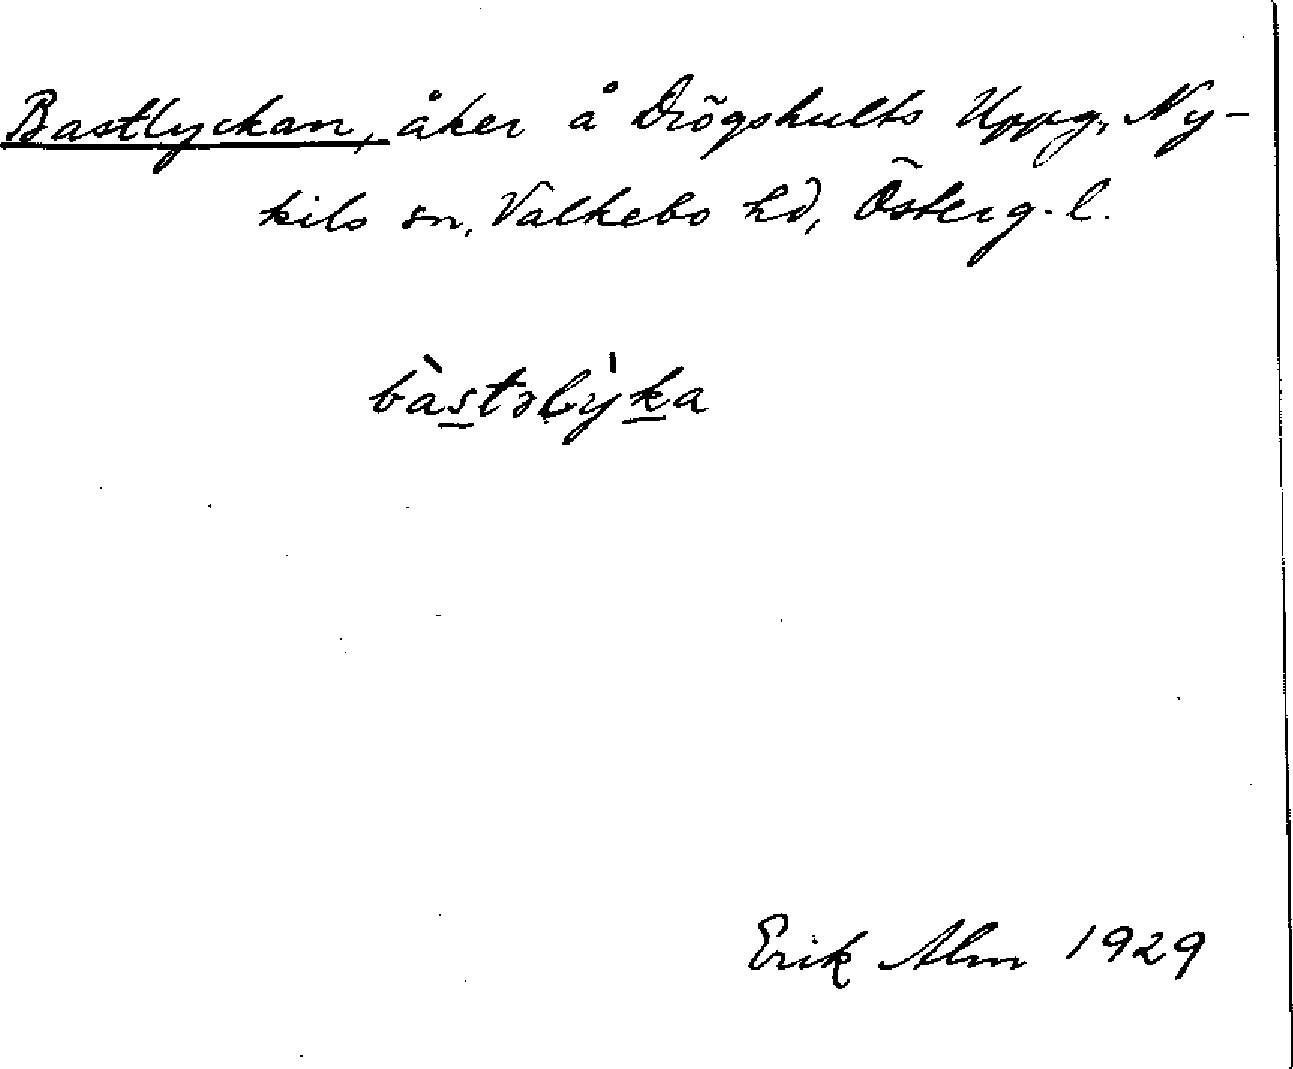 Bastlyckan, åker å Drögshults Uppg., Ny-
kils sn, Valkebo hd, Österg. l.
bàstəlýka
Erik Alm 1929